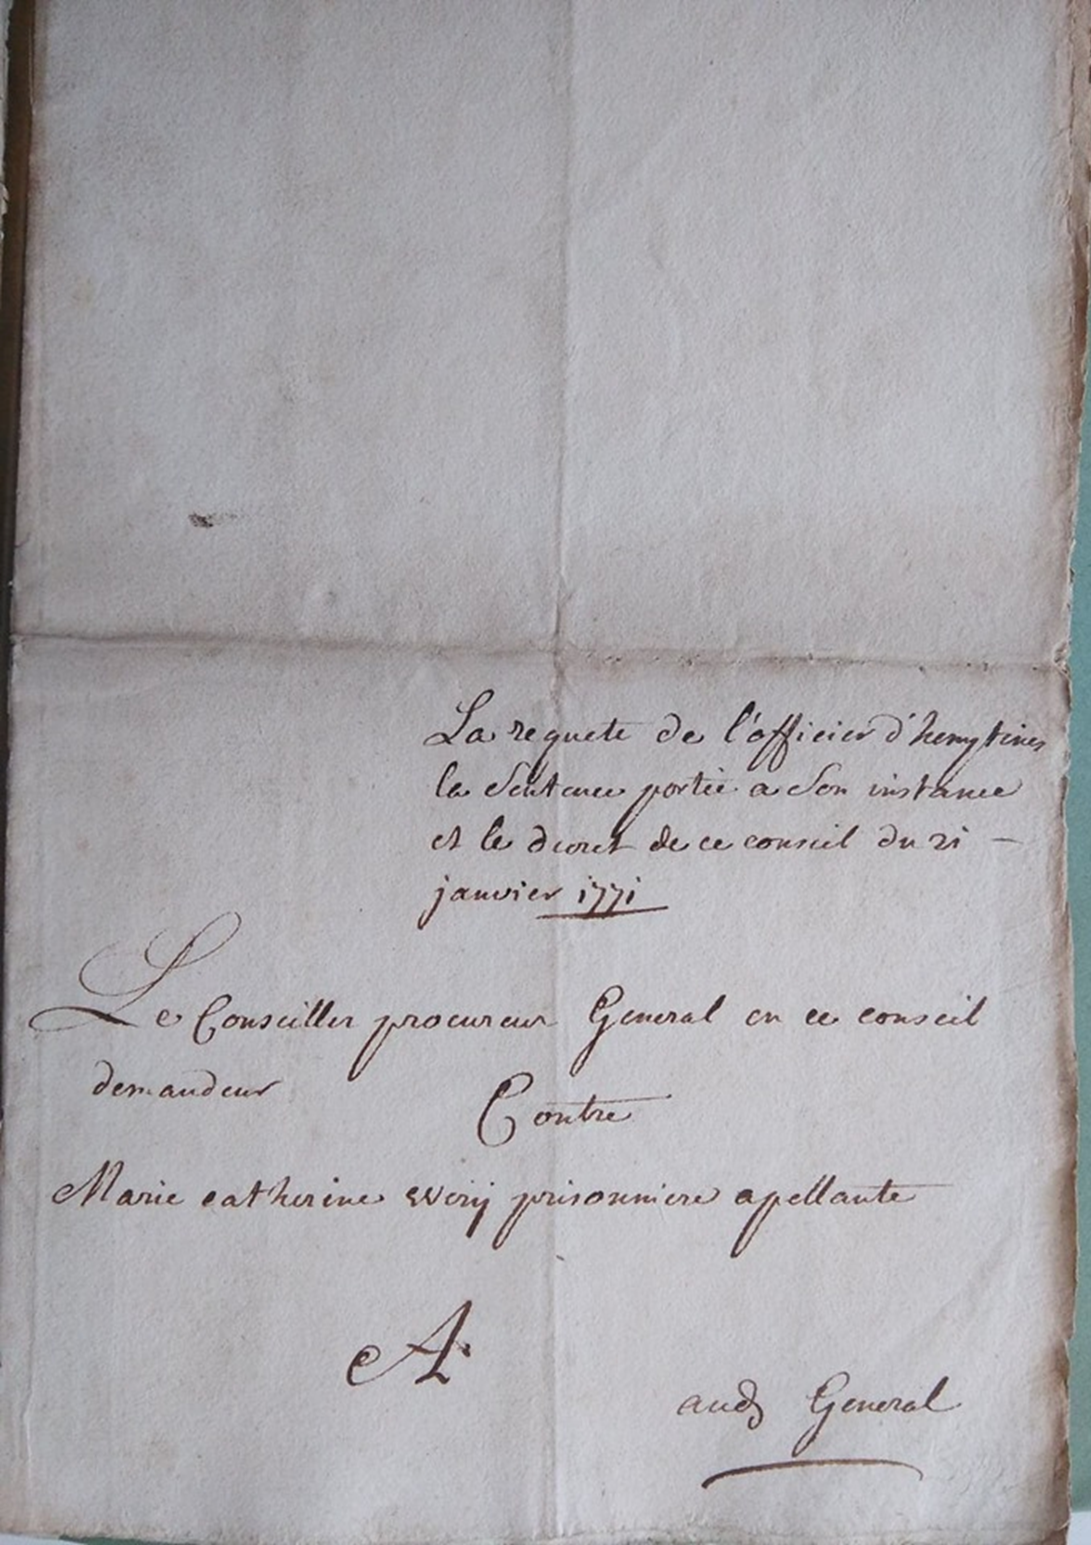 La requete de l'officier d'hemptines
la Sentence portée a Son instance
et le decret de ce conseil du 21 -
janvier 1771
Le Conseiller procureur General en ce conseil
demandeur
Contre
Marie catherine Werij prisonniere apellante
A
General